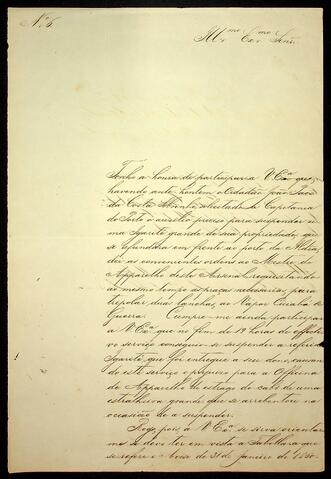 Nº 6.
Illmo Exmo Senr.
Tenho a honra de participar a V Exª que,
havendo ante-hontem o Cidadão João José
da Costa solicitado a Capitania
do Porto o auxilio preciso para suspender u-
ma Igarité grande de sua propriedade, que
se afundára em frente ao porto da
dei as convenientes ordens ao Mestre do
Apparelho deste Arsenal, requisitando
ao mesmo tempo as praças necessarias para
tripolar duas lanchas ao Vapor
Guerra. Cumpre-me ainda participar
a V Exª que no fim de 19 horas de effecti-
vo serviço conseguio-se suspender a referida
Igarité, que foi entregue a seu dono, causan-
do este serviço o prejuizo para a Officina
de Apparelho do estrago do cabo de uma
estralheira grande que se arrebentou na
occasião de a suspender.
Rogo, pois, a V Exª se sirva orientar-
me se devo ter em vista a Tabella a que
se refere o Aviso de 31 de Janeiro de